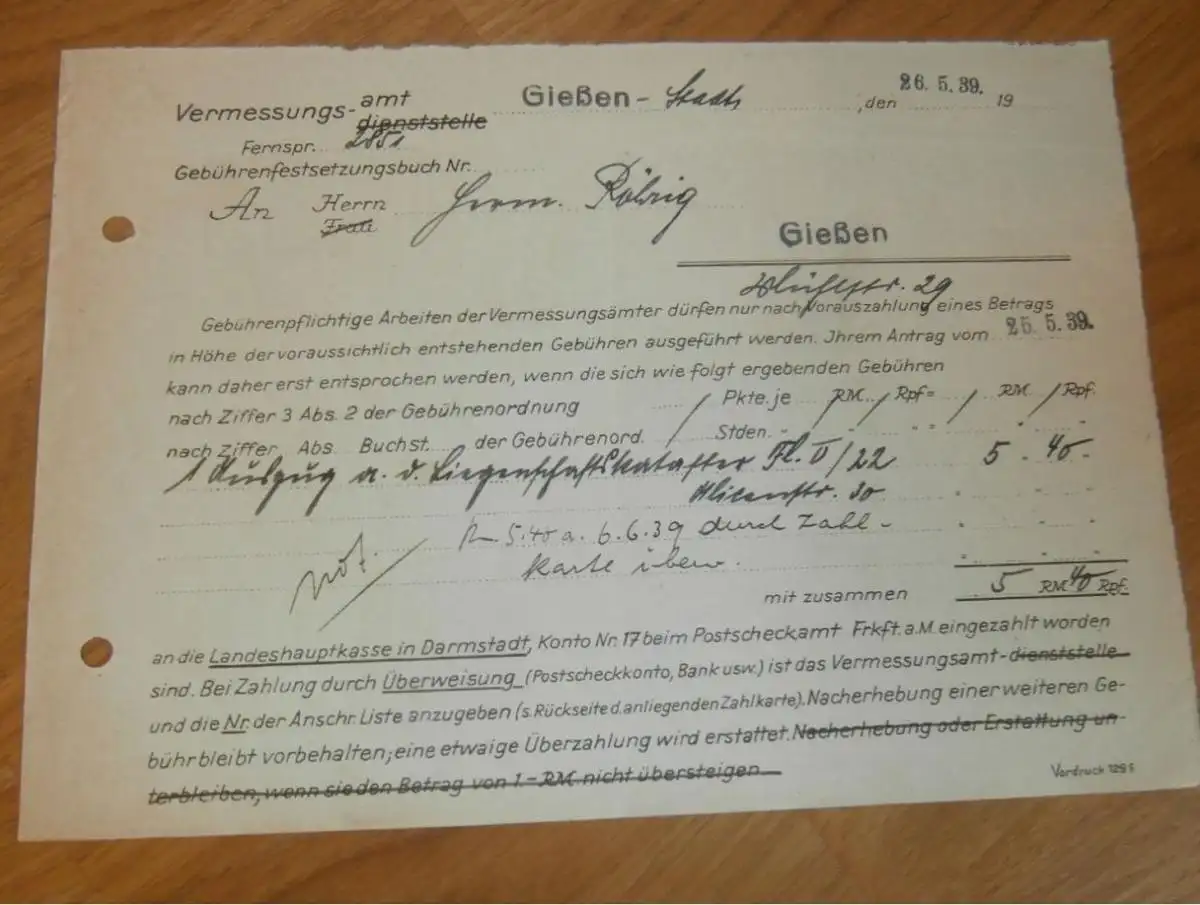 Vermessungs-amt dienststelle Gießen - Stadt, den 26. 5. 39. 19
Fernspr. 2851
Gebührenfestsetzungsbuch Nr.
An Herrn Herrm. Röhrig
Frau
Gießen
29
Gebührenpflichtige Arbeiten der Vermessungsämter dürfen nur nach Vorauszahlung eines Betrags
in Höhe der voraussichtlich entstehenden Gebühren ausgeführt werden. Jhrem Antrag vom 26. 5. 39.
kann daher erst entsprochen werden, wenn die sich wie folgt ergebenden Gebühren
nach Ziffer 3 Abs. 2 der Gebührenordnung / Pkte. je / RM / Rpf = / RM / Rpf.
nach Ziffer Abs. Buchst. der Gebührenord. / Stden. - " = "
1 Auszug a. d. Liegenschaftskataster Fl. V/22 5 . 40 .
Alicenstr. 30
5.40 a. 6.6.39 durch Zahl-
karte überw.
not.
mit zusammen 5 RM 40 Rpf.
an die Landeshauptkasse in Darmstadt, Konto Nr. 17 beim Postscheckamt Frkft. a. M. eingezahlt worden
sind. Bei Zahlung durch Überweisung (Postscheckkonto, Bank usw.) ist das Vermessungsamt-dienststelle
und die Nr. der Anschr. Liste anzugeben (s. Rückseite d. anliegenden Zahlkarte). Nacherhebung einer weiteren Ge-
bühr bleibt vorbehalten; eine etwaige Überzahlung wird erstattet. Nacherhebung oder Erstattung un-
terbleiben, wenn sie den Betrag von 1.- RM nicht übersteigen.
Vordruck 129 E